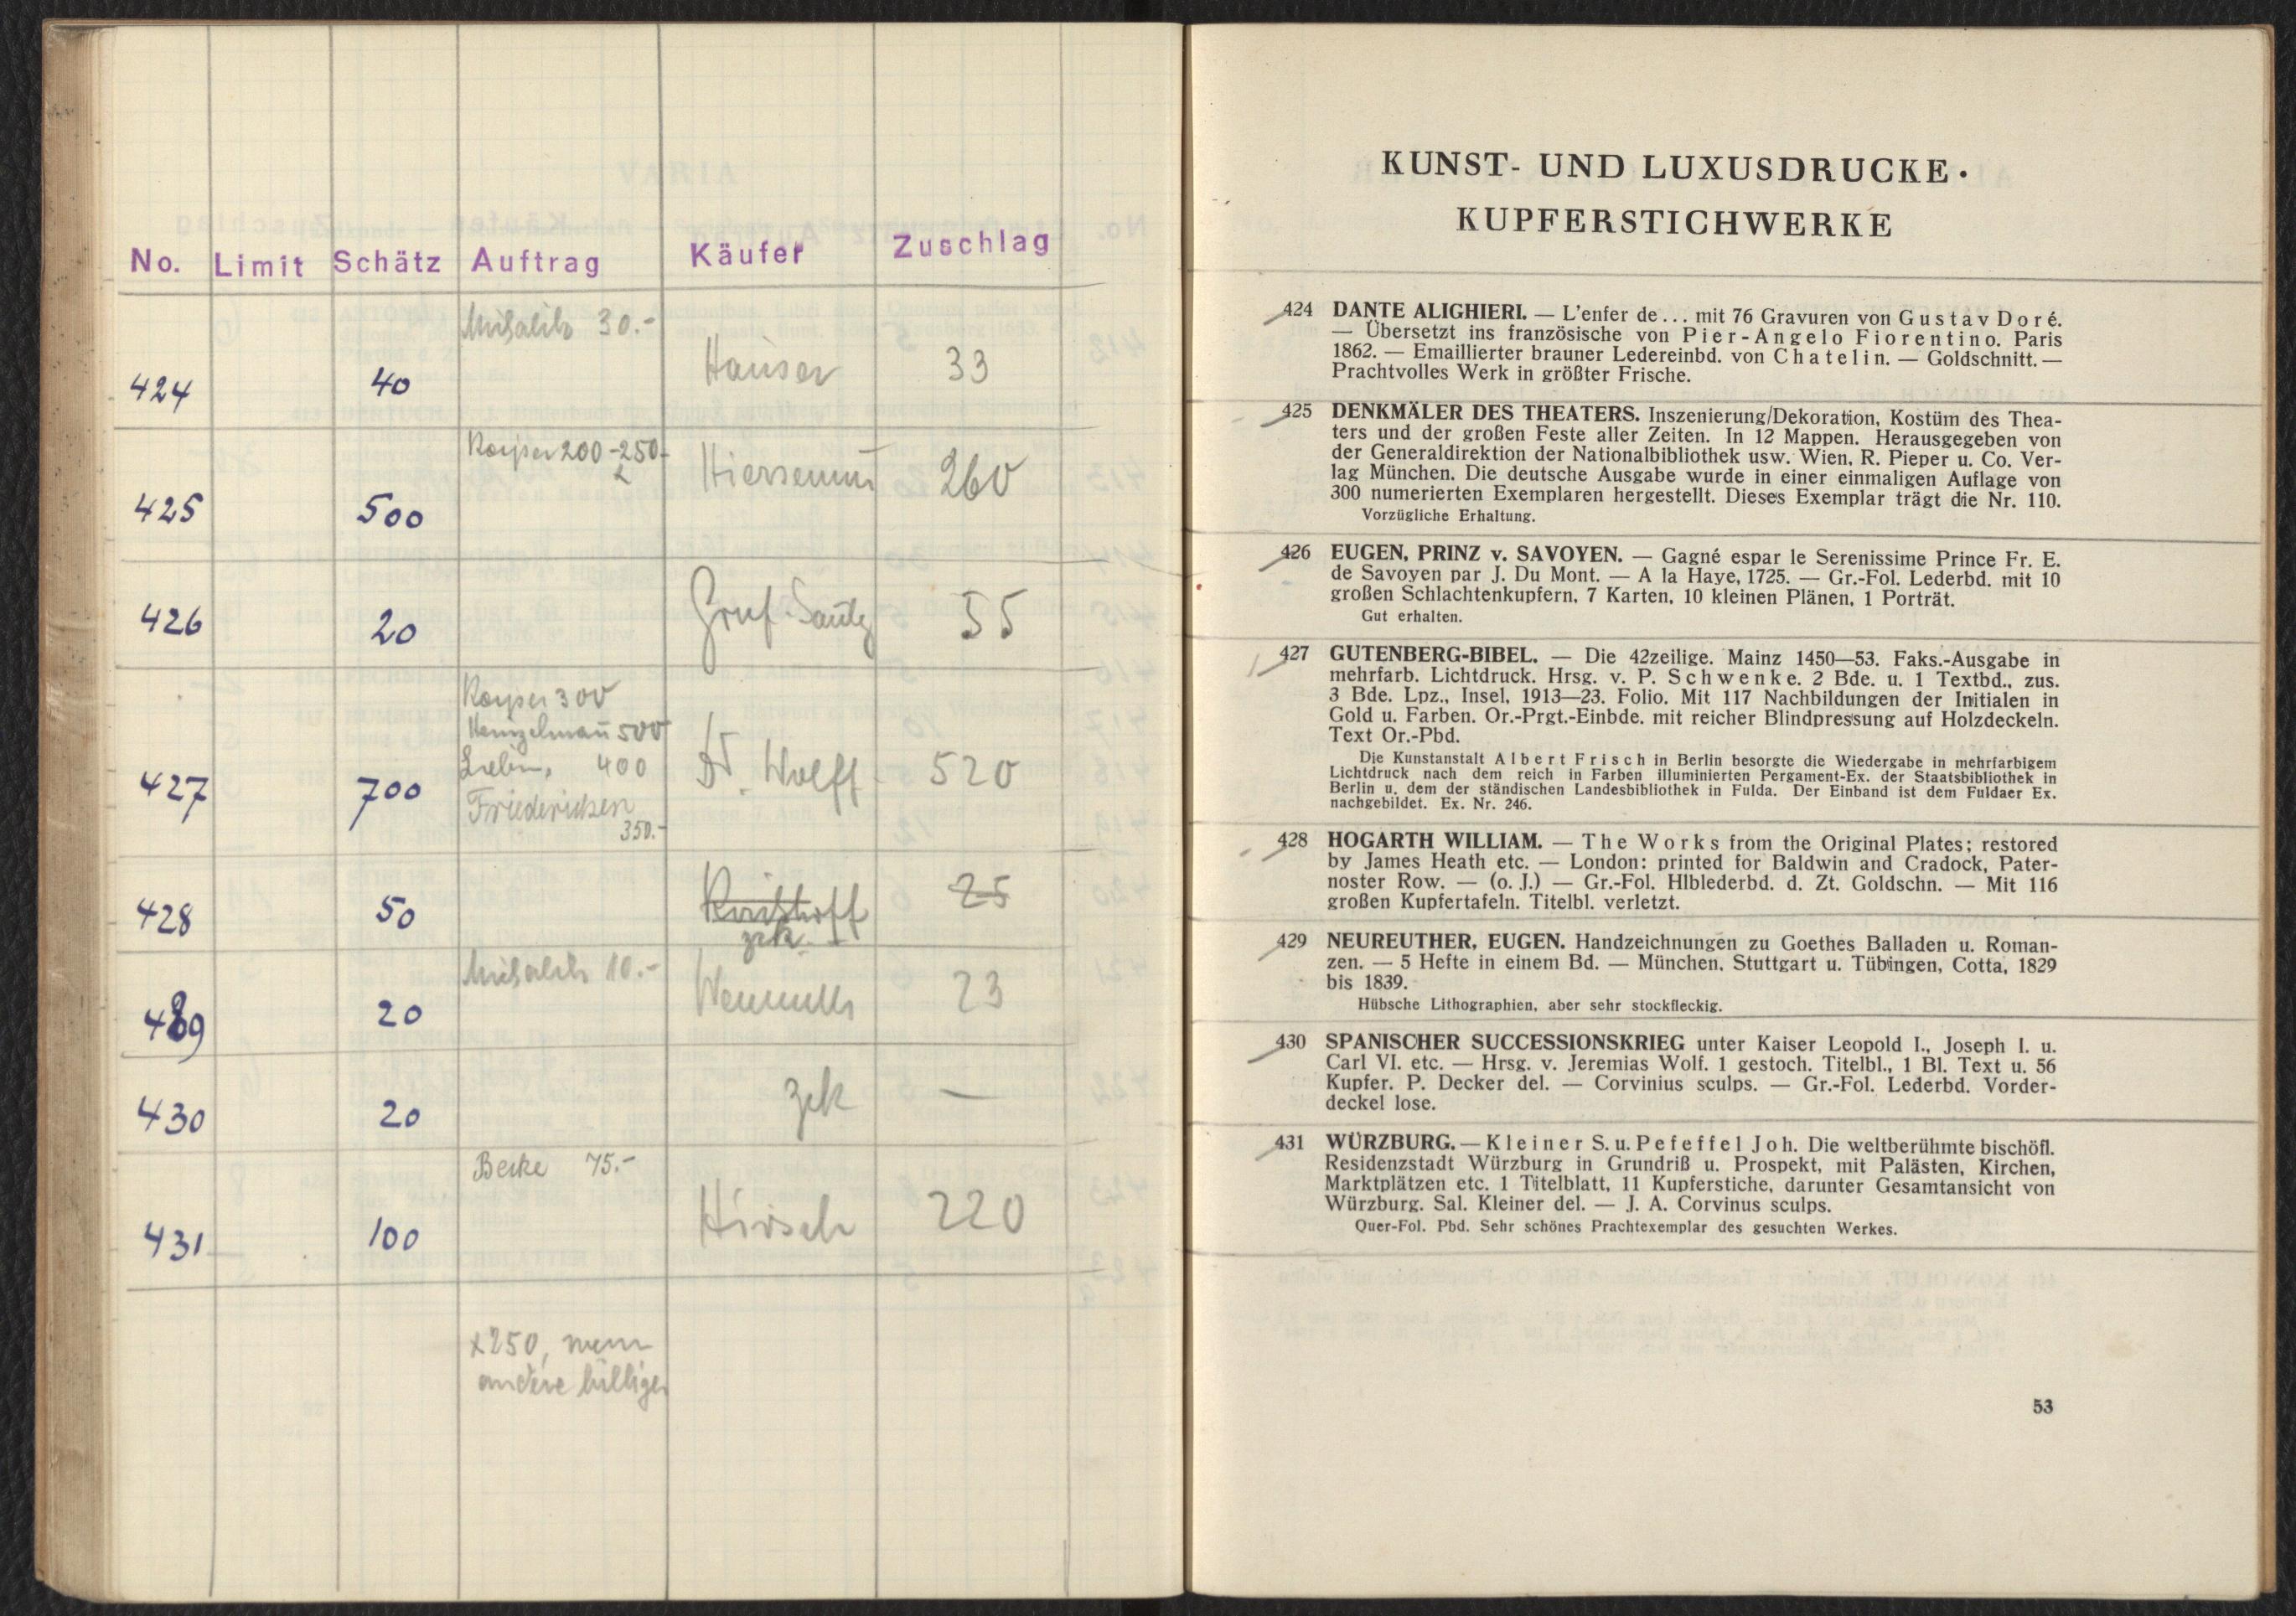 No. Limit Schätz Auftrag Käufer Zuschlag
30.-
424 40 Hauser 33
200-250.-
425 500 260
426 20 55
300
500
400
427 700 Dr. Wolff 520
Friederichsen
350.-
428 50 25
zrk.
10.-
429 20 23
430 20 zrk —
Beske 75.-
431 100 Hirsch 220
x250, wenn
andere billiger
KUNST- UND LUXUSDRUCKE ·
KUPFERSTICHWERKE
424 DANTE ALIGHIERI. — L'enfer de... mit 76 Gravuren von Gustav Doré.
— Übersetzt ins französische von Pier-Angelo Fiorentino. Paris
1862. — Emaillierter brauner Ledereinbd. von Chatelin. — Goldschnitt. —
Prachtvolles Werk in größter Frische.
425 DENKMÄLER DES THEATERS. Inszenierung/Dekoration, Kostüm des Thea-
ters und der großen Feste aller Zeiten. In 12 Mappen. Herausgegeben von
der Generaldirektion der Nationalbibliothek usw. Wien, R. Pieper u. Co. Ver-
lag München. Die deutsche Ausgabe wurde in einer einmaligen Auflage von
300 numerierten Exemplaren hergestellt. Dieses Exemplar trägt die Nr. 110.
Vorzügliche Erhaltung.
426 EUGEN, PRINZ v. SAVOYEN. — Gagné espar le Serenissime Prince Fr. E.
de Savoyen par J. Du Mont. — A la Haye, 1725. — Gr.-Fol. Lederbd. mit 10
großen Schlachtenkupfern, 7 Karten, 10 kleinen Plänen, 1 Porträt.
Gut erhalten.
427 GUTENBERG-BIBEL. — Die 42zeilige. Mainz 1450—53. Faks.-Ausgabe in
mehrfarb. Lichtdruck. Hrsg. v. P. Schwenke. 2 Bde. u. 1 Textbd., zus.
3 Bde. Lpz., Insel, 1913—23. Folio. Mit 117 Nachbildungen der Initialen in
Gold u. Farben. Or.-Prgt.-Einbde. mit reicher Blindpressung auf Holzdeckeln.
Text Or.-Pbd.
Die Kunstanstalt Albert Frisch in Berlin besorgte die Wiedergabe in mehrfarbigem
Lichtdruck nach dem reich in Farben illuminierten Pergament-Ex. der Staatsbibliothek in
Berlin u. dem der ständischen Landesbibliothek in Fulda. Der Einband ist dem Fuldaer Ex.
nachgebildet. Ex. Nr. 246.
428 HOGARTH WILLIAM. — The Works from the Original Plates; restored
by James Heath etc. — London: printed for Baldwin and Cradock, Pater-
noster Row. — (o. J.) — Gr.-Fol. Hlblederbd. d. Zt. Goldschn. — Mit 116
großen Kupfertafeln. Titelbl. verletzt.
429 NEUREUTHER, EUGEN. Handzeichnungen zu Goethes Balladen u. Roman-
zen. — 5 Hefte in einem Bd. — München, Stuttgart u. Tübingen, Cotta, 1829
bis 1839.
Hübsche Lithographien, aber sehr stockfleckig.
430 SPANISCHER SUCCESSIONSKRIEG unter Kaiser Leopold I., Joseph I. u.
Carl VI. etc. — Hrsg. v. Jeremias Wolf. 1 gestoch. Titelbl., 1 Bl. Text u. 56
Kupfer. P. Decker del. — Corvinius sculps. — Gr.-Fol. Lederbd. Vorder-
deckel lose.
431 WÜRZBURG. — Kleiner S. u. Pefeffel Joh. Die weltberühmte bischöfl.
Residenzstadt Würzburg in Grundriß u. Prospekt, mit Palästen, Kirchen,
Marktplätzen etc. 1 Titelblatt, 11 Kupferstiche, darunter Gesamtansicht von
Würzburg. Sal. Kleiner del. — J. A. Corvinus sculps.
Quer-Fol. Pbd. Sehr schönes Prachtexemplar des gesuchten Werkes.
53